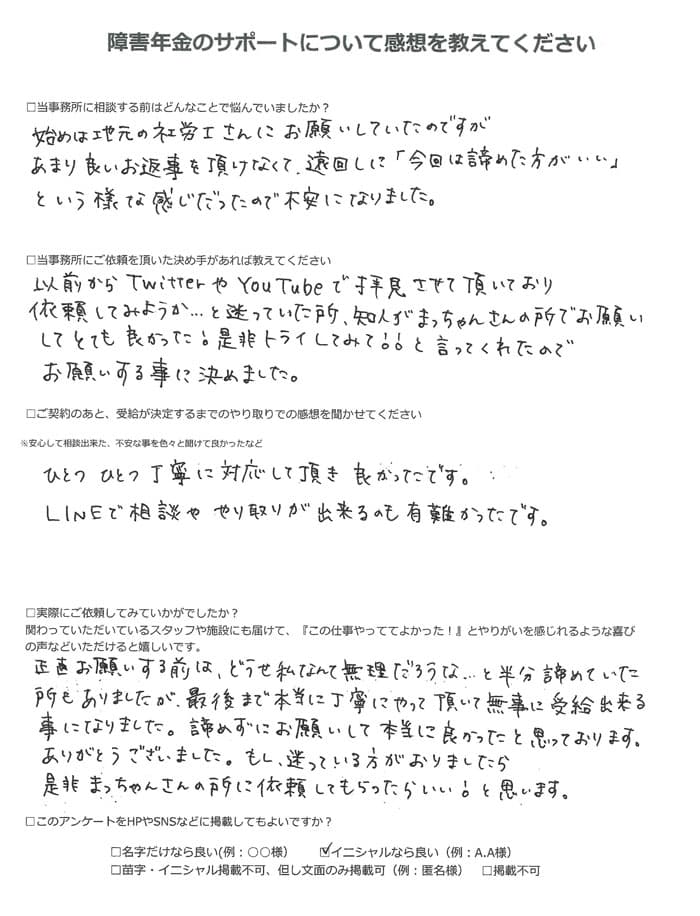 障害年金のサポートについて感想を教えてください
□当事務所に相談する前はどんなことで悩んでいましたか？
始めは地元の社労士さんにお願いしていたのですが
あまり良いお返事を頂けなくて、遠回しに「今回は諦めた方がいい」
という様な感じだったので不安になりました。
□当事務所にご依頼を頂いた決め手があれば教えてください
以前からTwitterやYouTubeで拝見させて頂いており
依頼してみようか…と迷っていた所、知人がまっちゃんさんの所でお願い
してとても良かった！是非トライしてみて！！と言ってくれたので
お願いする事に決めました。
□ご契約のあと、受給が決定するまでのやり取りでの感想を聞かせてください
※安心して相談出来た、不安な事を色々と聞けて良かったなど
ひとつ ひとつ丁寧に対応して頂き 良かったです。
LINEで相談や やり取りが出来るのも有難かったです。
□実際にご依頼してみていかがでしたか？
関わっていただいているスタッフや施設にも届けて、『この仕事やっててよかった！』とやりがいを感じれるような喜び
の声などいただけると嬉しいです。
正直お願いする前は、どうせ私なんて無理だろうな…と半分諦めていた
所もありましたが、最後まで本当に丁寧にやって頂いて無事に受給出来る
事になりました。諦めずにお願いして本当に良かったと思っております。
ありがとうございました。もし、迷っている方がおりましたら
是非まっちゃんさんの所に依頼してもらったらいい！と思います。
□このアンケートをHPやSNSなどに掲載してもよいですか？
□名字だけなら良い(例：〇〇様） ☑イニシャルなら良い（例：A.A様）
□苗字・イニシャル掲載不可、但し文面のみ掲載可（例：匿名様） □掲載不可